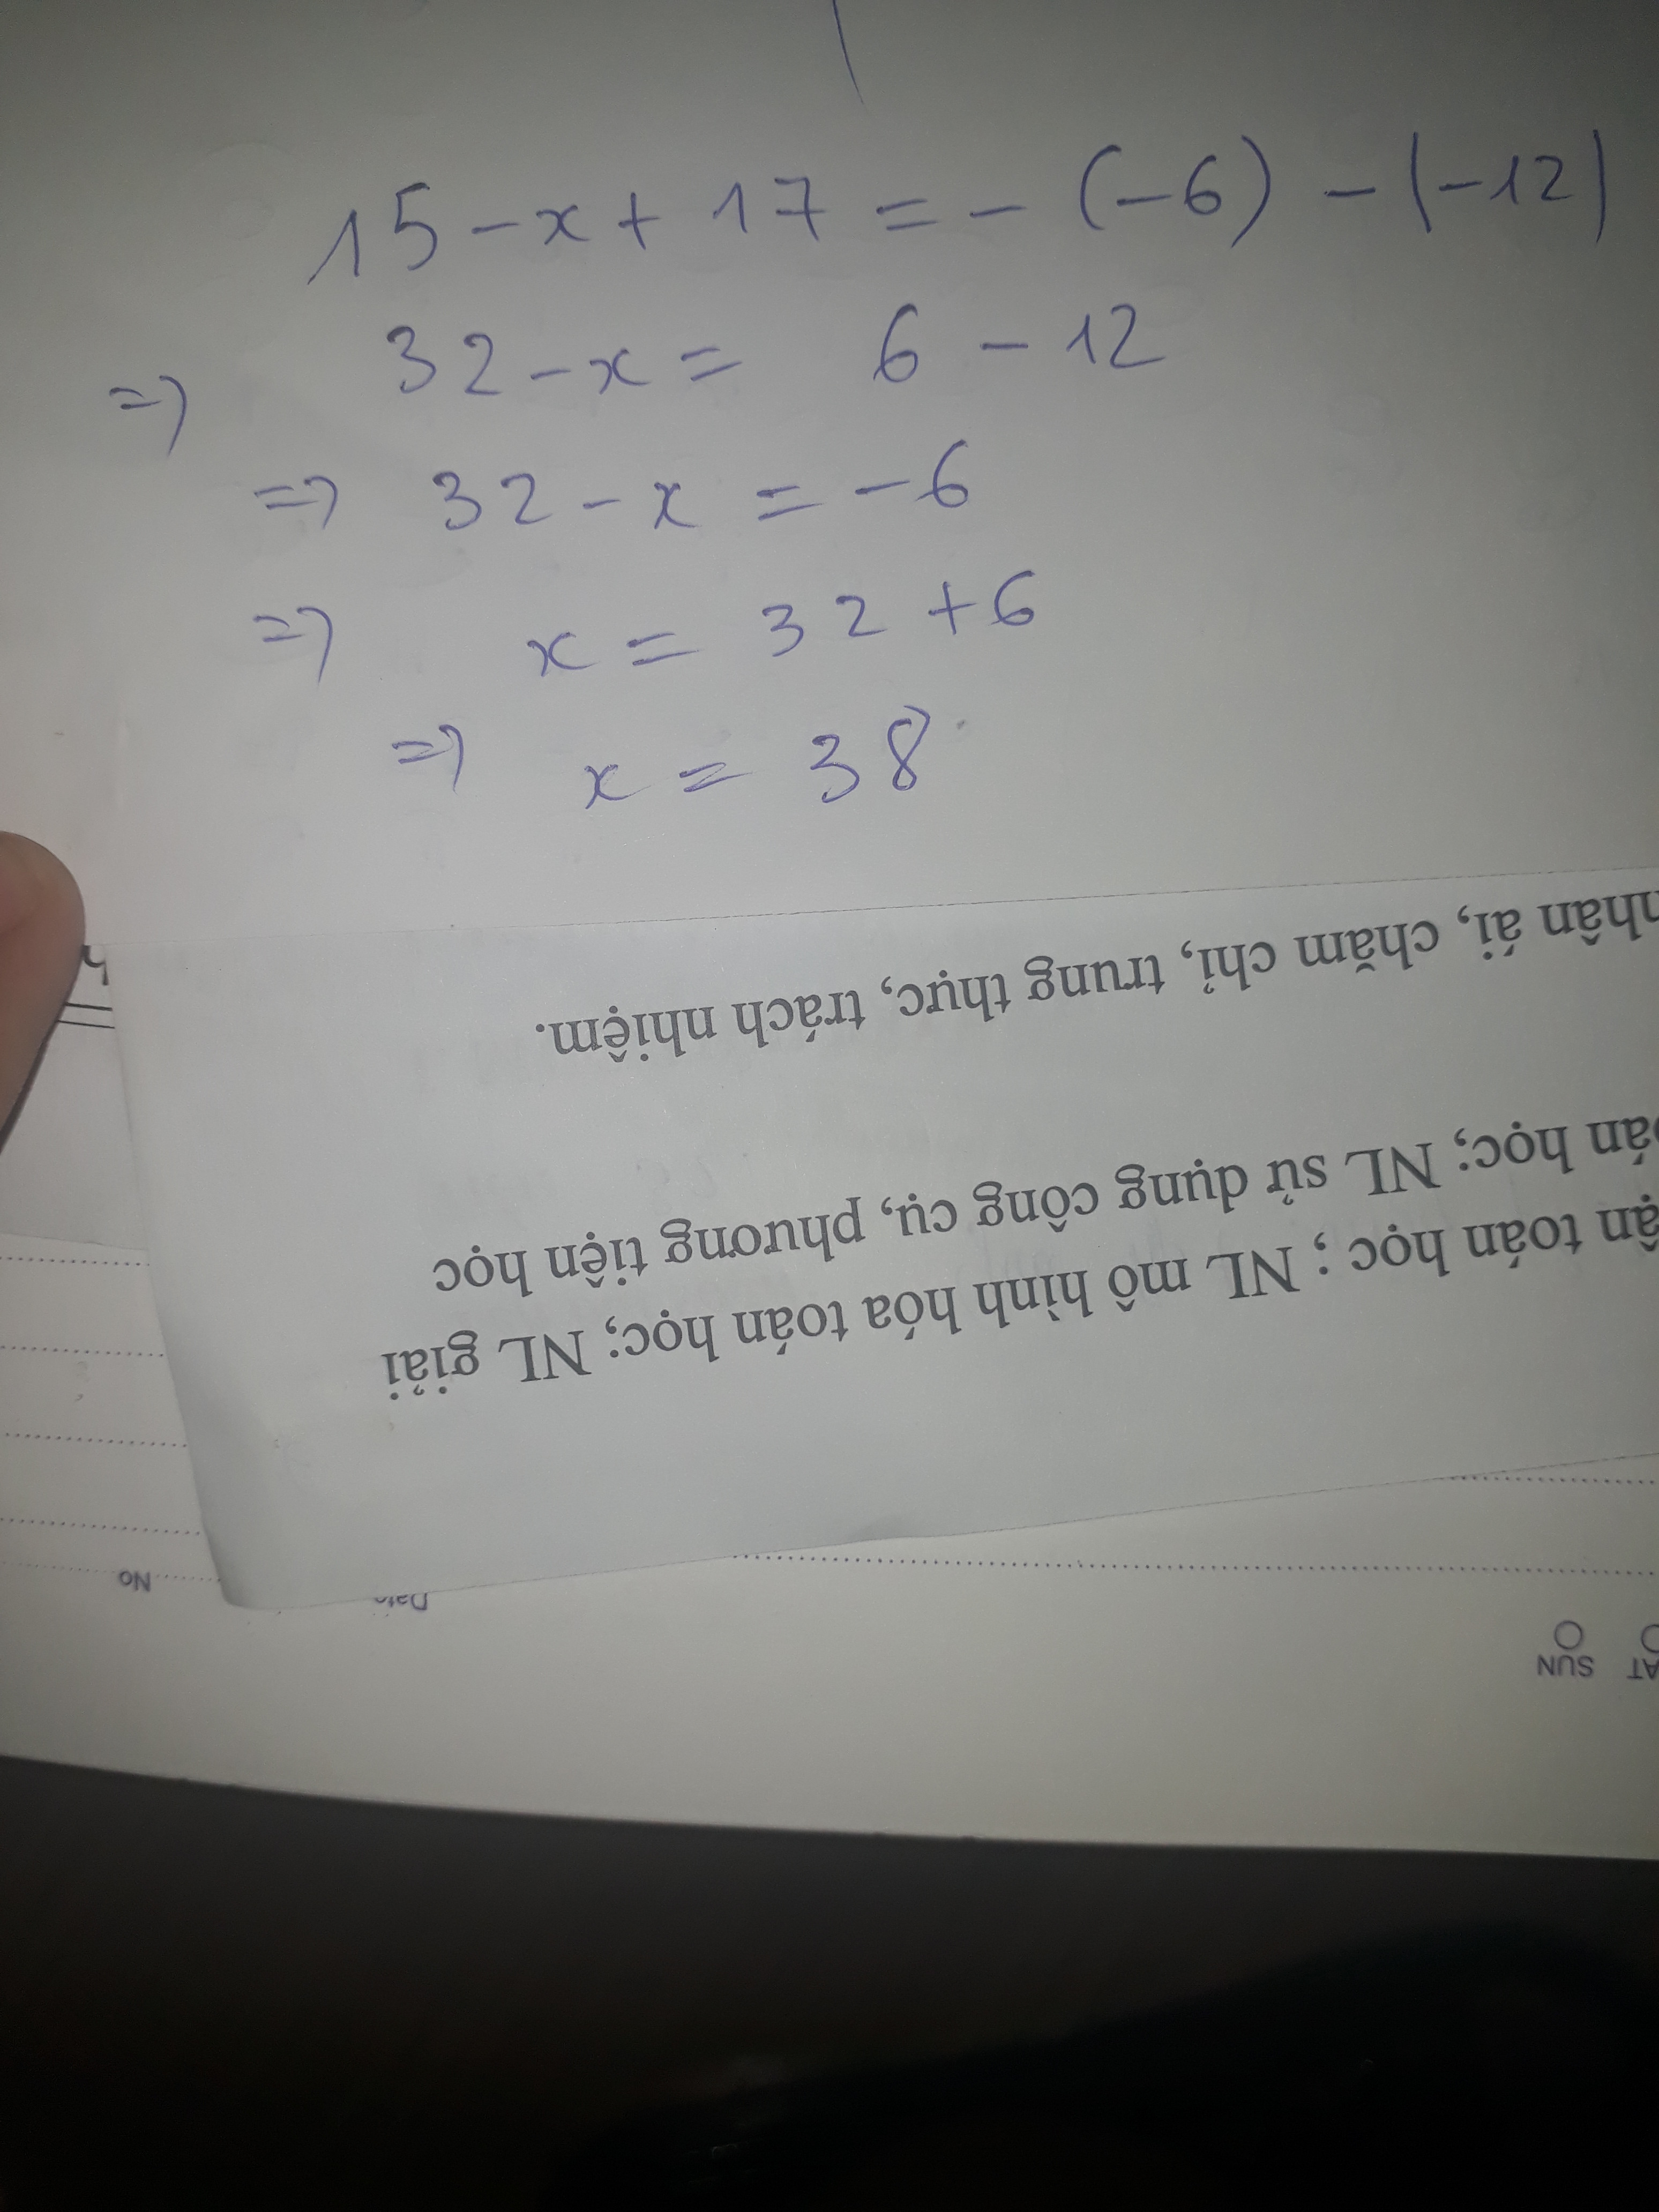 15 - x + 17 = - (-6) - |-12|
=> 32 - x = 6 - 12
=> 32 - x = -6
=> x = 32 + 6
=> x = 38
nhân ái, chăm chỉ, trung thực, trách nhiệm.
học; NL sử dụng công cụ, phương tiện học
toán học ; NL mô hình hóa toán học; NL giải
No
SUN